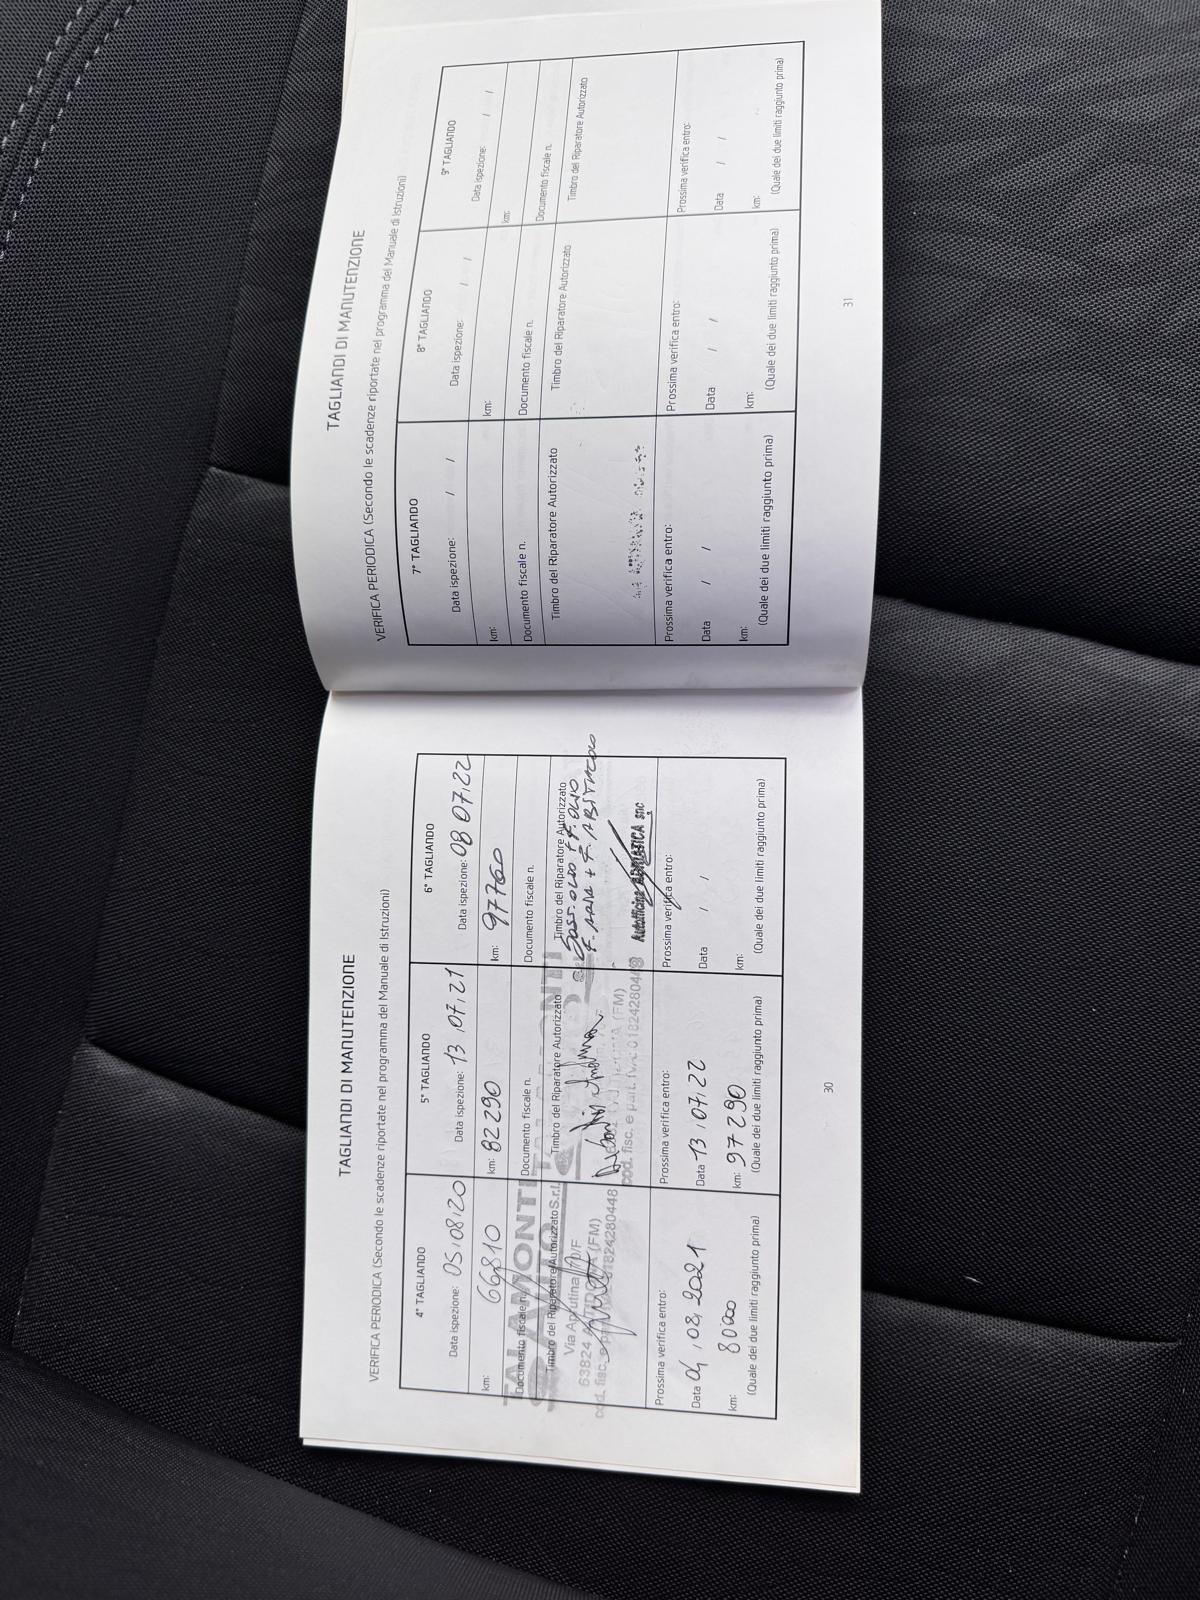 TAGLIANDI DI MANUTENZIONE
VERIFICA PERIODICA (Secondo le scadenze riportate nel programma del Manuale di Istruzioni)
4° TAGLIANDO
Data ispezione: 05/08/20
km: 66810
Documento fiscale n.
Timbro del Riparatore Autorizzato
TALAMONTI
AUTO S.r.l.
63824 (FM)
cod. fisc. 01824280448
Prossima verifica entro:
Data 04/08/2021
km: 80000
(Quale dei due limiti raggiunto prima)
5° TAGLIANDO
Data ispezione: 13/07/21
km: 82290
Documento fiscale n.
Timbro del Riparatore Autorizzato
(FM)
cod. fisc. e part. IVA 01824280448
Prossima verifica entro:
Data 13/07/22
km: 97290
(Quale dei due limiti raggiunto prima)
6° TAGLIANDO
Data ispezione: 08/07/22
km: 97760
Documento fiscale n.
Timbro del Riparatore Autorizzato
SOST. OLIO + F. OLIO
F. ARIA + F. ABITACOLO
Autofficina ADRIATICA snc
Prossima verifica entro:
Data / /
km:
(Quale dei due limiti raggiunto prima)
30
TAGLIANDI DI MANUTENZIONE
VERIFICA PERIODICA (Secondo le scadenze riportate nel programma del Manuale di Istruzioni)
7° TAGLIANDO
Data ispezione: / /
km:
Documento fiscale n.
Timbro del Riparatore Autorizzato
Prossima verifica entro:
Data / /
km:
(Quale dei due limiti raggiunto prima)
8° TAGLIANDO
Data ispezione: / /
km:
Documento fiscale n.
Timbro del Riparatore Autorizzato
Prossima verifica entro:
Data / /
km:
(Quale dei due limiti raggiunto prima)
9° TAGLIANDO
Data ispezione: / /
km:
Documento fiscale n.
Timbro del Riparatore Autorizzato
Prossima verifica entro:
Data / /
km:
(Quale dei due limiti raggiunto prima)
31